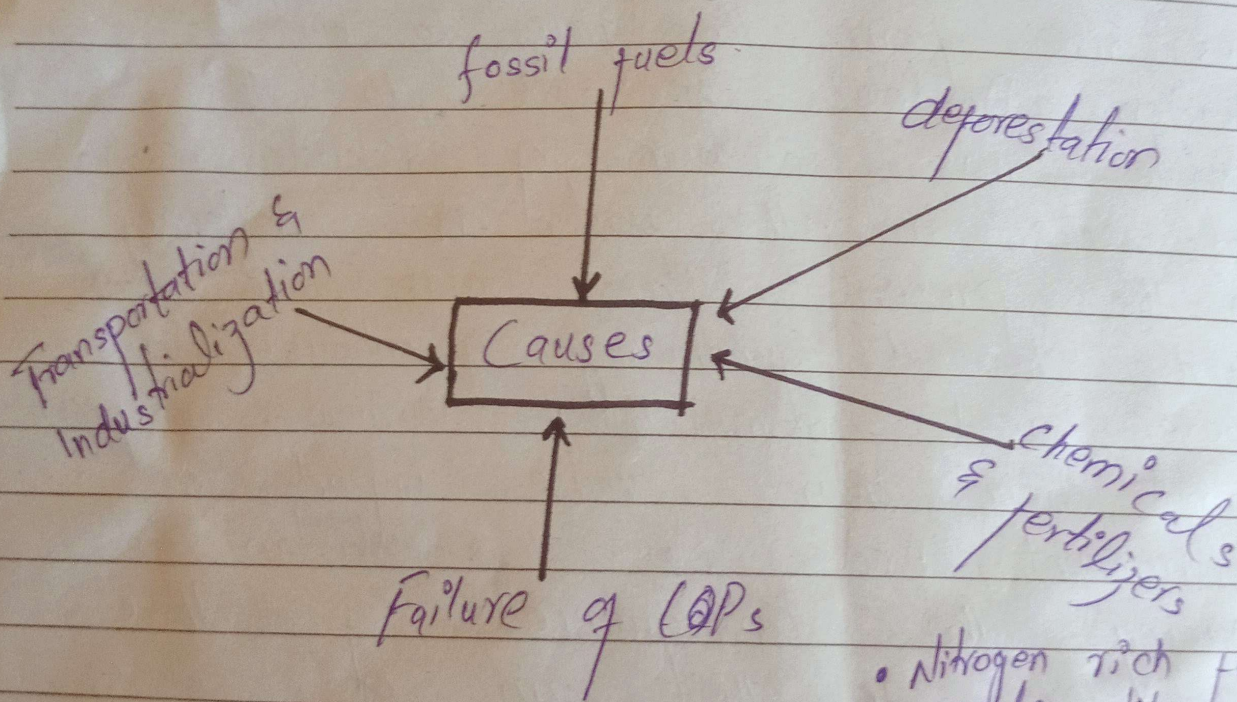 fossil fuels
deforestation
Transportation &
Industrialization
Causes
Chemicals
& fertilizers
Failure of COPs
• Nitrogen rich